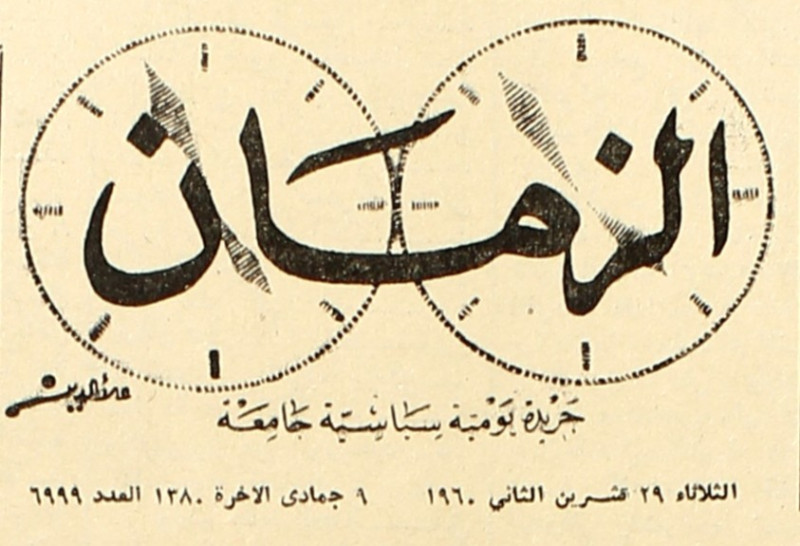 الزمان
علاء الدين
جَرْيْدة يَوْميّة سِيَاسْيّة جَامِعَة
الثلاثاء ٢٩ تشرين الثاني ١٩٦٠ ٩ جمادى الاخرة ١٣٨٠ العدد ٦٩٩٩